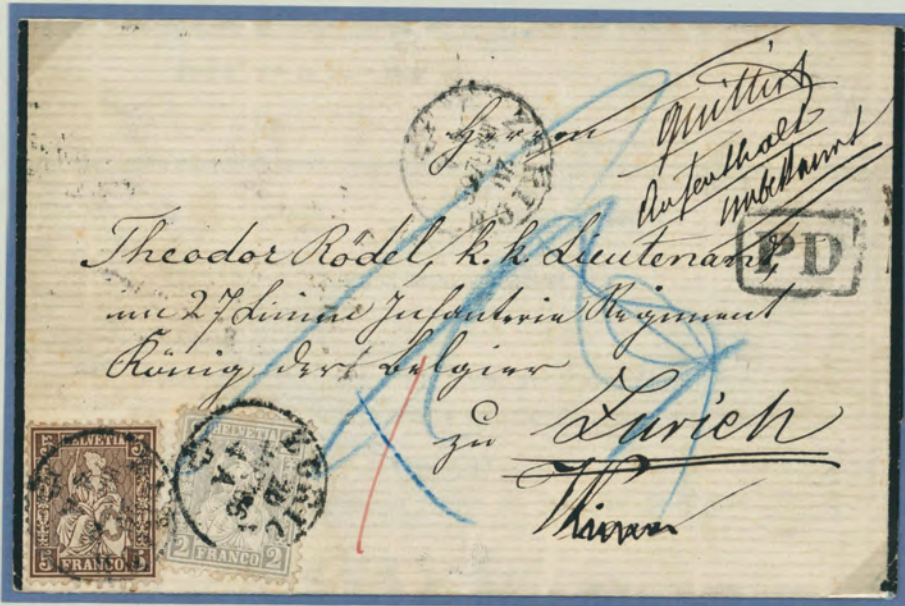 quittirt
Aufenthalt
unbekannt
Herrn
PD
Theodor Rödel, k. k. Lieutenant,
im 27 Linien Infanterie Regiment
König der Belgier
zu Zurich
Wien
ZURICH
HELVETIA
5 FRANCO 5
HELVETIA
2 FRANCO 2
ZURICH